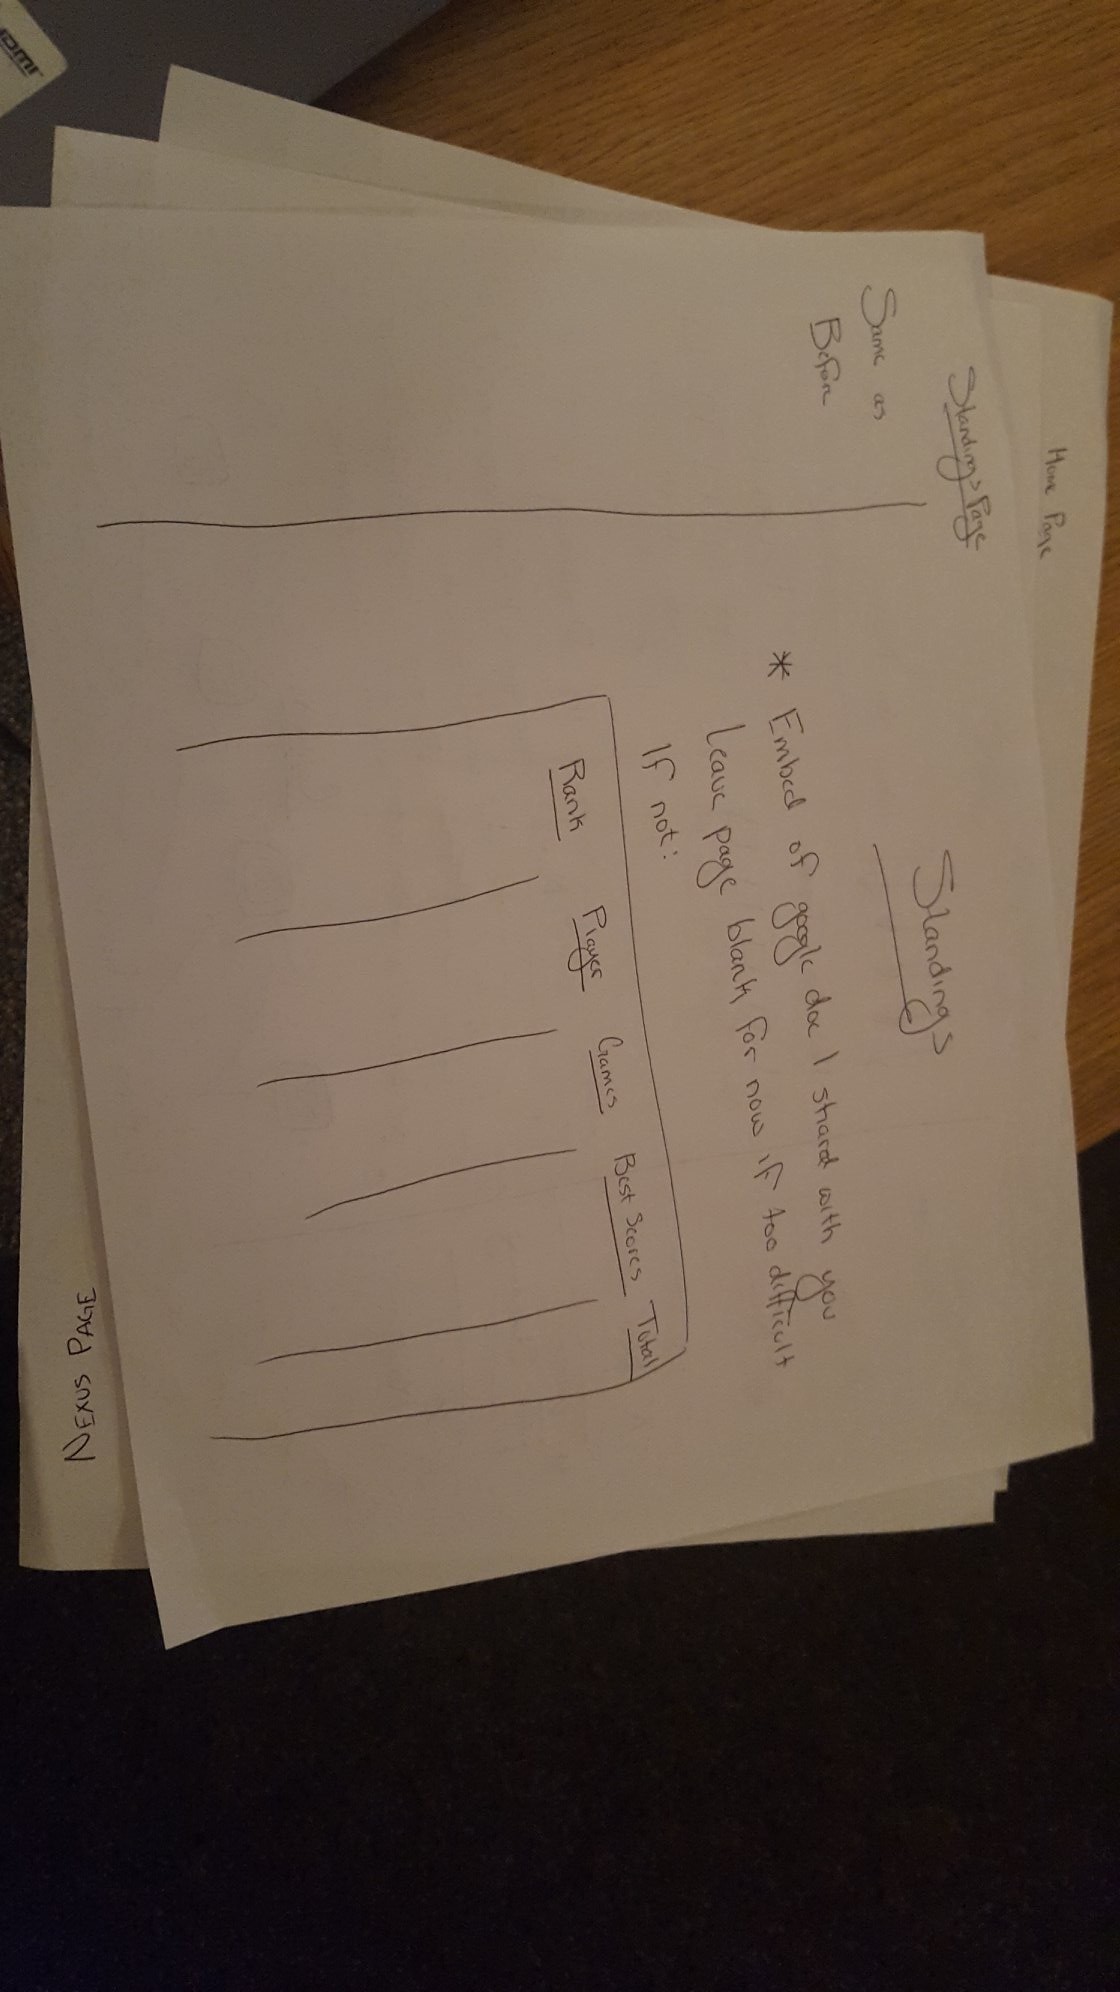 Home Page
Standings Page
Same as
Before
Standings
* Embed of google doc I shard with you
Leave page blank for now if too difficult
If not:
Rank Player Games Best Scores Total
NEXUS PAGE
HDMI